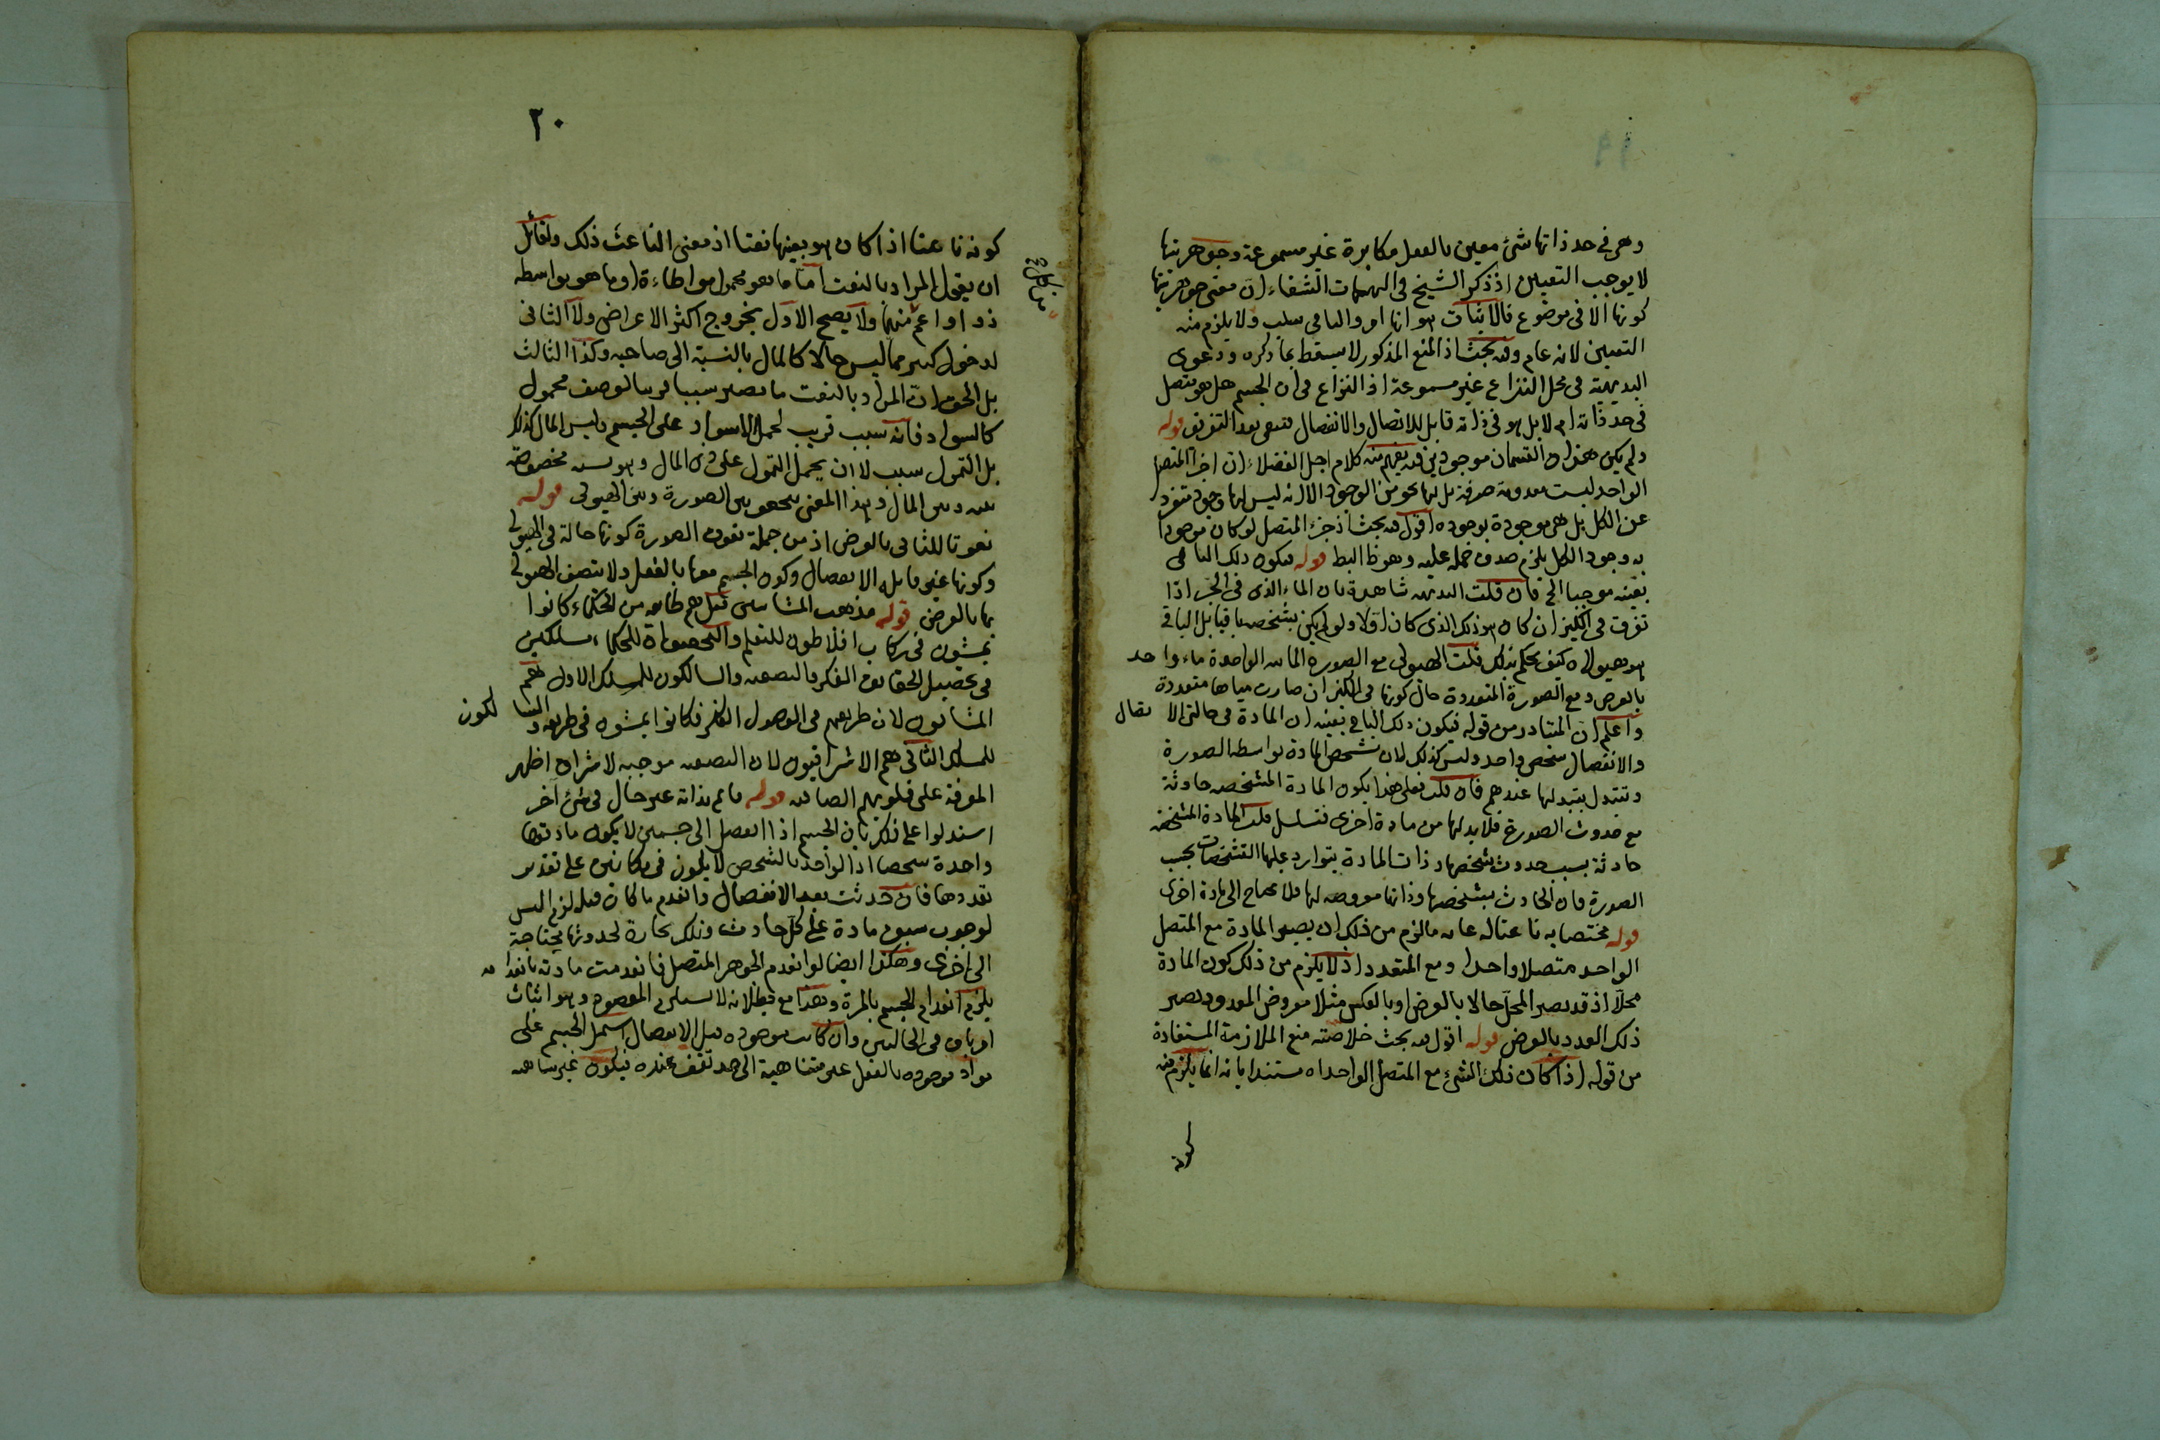 وهى فى حد ذاتها شئ معين بالفعل مكابرة غير مسموعة وجوهريتها
لا يوجب التعين اذ ذكر الشيخ فى الهيات الشفاء ان معنى جوهريتها
كونها لا فى موضوع فالاثبات هو انها امر والباقى سلب ولا يلزم منه
التعين لانه عام وفيه بحث اذ المنع المذكور لا يسقط بما ذكره ودعوى
البديهية فى محل النزاع غير مسموعة اذ النزاع فى ان الجسم هل هو متصل
فى حد ذاته ام لا بل هو فى ذاته قابل للاتصال والانفصال فيبقى بعد التفريق قوله
ولم يكن هذان القسمان موجودين قد يفهم منه كلام اجل الفضلاء ان اجزاء المتصل
الواحد ليست معدومة صرفة بل لها نحو من الوجود الا انه ليس لها وجود متفرد
عن الكل بل هى موجودة بوجوده اقول فيه بحث اذ جزء المتصل لو كان موجودا
بوجود الكل يلزم صدق حمله عليه وهو ظ البط قوله فيكون ذلك الباقى
بعينه موجبا الخ فان قلت البديهة شاهدة بان الماء الذى فى الجر اذا
تفرق فى الكيزان كان هو ذلك الذى كان اولا ولو لم يكن بشخصه باقيا بل الباقى
هو هيولاه كيف يحكم بذلك قلت الهيولى مع الصورة المائية الواحدة ماء واحد
بالعرض ومع الصورة المتعددة حال كونها فى الكيزان صارت مياها متعددة
واعلم ان المتبادر من قوله فيكون ذلك الباقى بعينه ان المادة فى حالتى الا تصال
والانفصال شخص واحد وليس كذلك لان تشخص المادة بواسطة الصورة
وتتبدل بتبدلها عندهم فان قلت فعلى هذا يكون المادة المتشخصة حادثة
مع حدوث الصورة فلا بد لها من مادة اخرى فتسلسل قلت المادة المتشخصة
حادثة بسبب حدوث تشخصها وذات المادة يتوارد عليها التشخصات بحسب
الصورة فان الحادث بتشخصها وذاتها معروضة لها فلا يحتاج الى مادة اخرى
قوله مختصا به ناعتا له غاية ما لزم من ذلك ان يصير المادة مع المتصل
الواحد متصلا واحدا ومع المتعدد اذ لا يلزم من ذلك كون المادة
محلا اذ قد يصير المحل حالا بالعرض وبالعكس مثلا معروض العدد يصير
ذلك العدد بالعرض قوله اقول فيه بحث خلاصته منع الملازمة المستفادة
من قوله اذا كان ذلك الشئ مع المتصل الواحداه مستندا بانه انما يلزم منه
كونه
٢٠
كونه ناعتا اذا كان هو بعينها نعتا اذ معنى الناعت ذلك ولقائل
ان يقول المراد بالنعت اما ما هو محمول مواطاءة او ما هو بواسطة
ذو او اعم منهما ولا يصح الاول بخروج اكثر الاعراض ولا الثانى
لدخول كثير مما ليس حالا كالمال بالنسبة الى صاحبه وكذا الثالث
بل الحق ان المراد بالنعت ما يصير سببا قريبا لوصف محمول
كالسواد فانه سبب قريب لحمل الاسود على الجسم وليس المال كذلك
بل التمول سبب لا ان يحمل المتمول على ذى المال وهو نسبة مخصوصة
بينه وبين المال وهذا المعنى متحقق بين الصورة وبين الهيولى قوله
نعوتا للثانى بالعرض اذ من جملة نعوت الصورة كونها حالة فى الهيولى
وكونها غير قابلة الانفصال وكون الجسم معها بالفعل ولا يتصف الهيولى
بها بالعرض قوله مذهب المشائين قيل هم طائفة من الحكماء كانوا
يمشون فى ركاب افلاطون للتعلم والتحصيل للحكماء مسلكين
فى تحصيل الحقائق الفكر والتصفية والسالكون للمسلك الاول هم
المشائون لان طريقهم فى الوصول الفكر فكانوا يمشون فى طريقه والسا لكون
للمسلك الثانى هم الاشراقيون لان التصفية موجبة لاشراق اظهر
المعرفة على قلوبهم الصافية قوله قائم بذاته غير حال فى شئ آخر
استدلوا على ذلك بان الجسم اذا انفصل الى جسمين لا يكون مادتها
واحدة شخصا اذ الواحد بالشخص لا يكون فى مكانين على تقدير
تعددها فان حدثت بعد الانفصال وانعدم ما كان قبله لزم التس
لوجوب سبق مادة على كل حادث وتلك الحادثة لحدوثها محتاجة
الى اخرى وهكذا ايضا لو انعدم الجوهر المتصل فانعدمت مادته بانعدا مه
يلزم انعدام الجسم بالمرة وهذا مع بطلانه لا يستلزم المقصود وهو اثبات
امر باق فى الحالتين وان كانت موجودة قبل الانفصال اشتمل الجسم على
مواد موجودة بالفعل غير متناهية الى حد تقف عنده فيكون غير متناهية